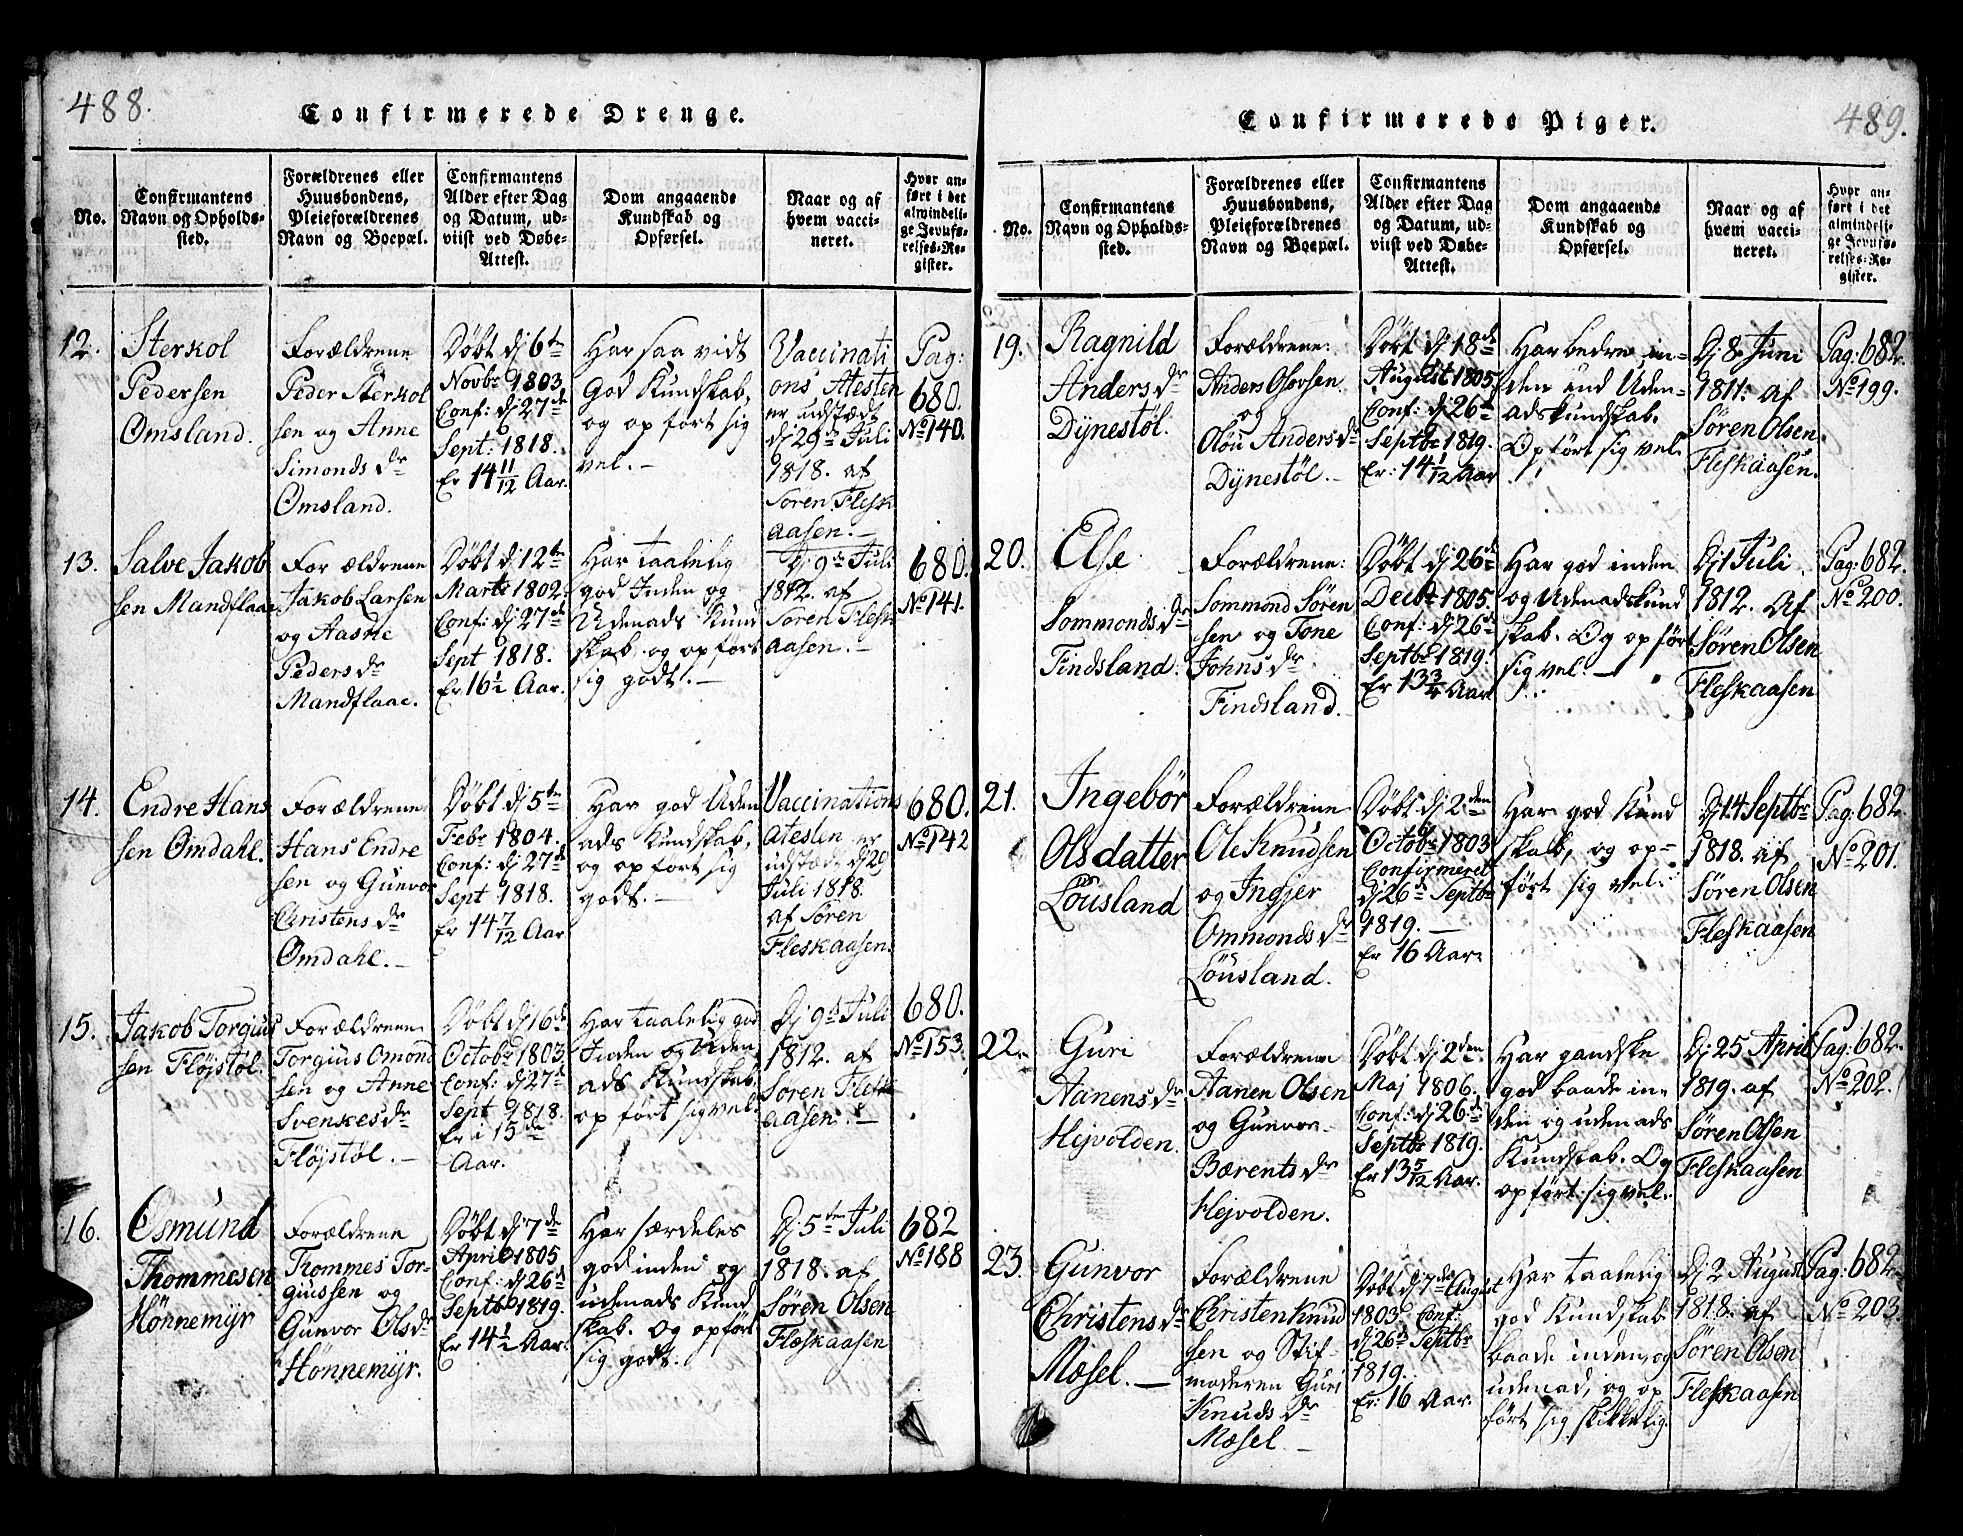 488.
Confirmerede Drenge.
No.
Confirmantens
Navn og Opholds-
sted.
Forældrenes eller
Huusbondens,
Pleieforældrenes
Navn og Boepæl.
Confirmantens
Alder efter Dag
og Datum, ud-
viist ved Døbe-
Attest.
Dom angaaende
Kundskab og
Opførsel.
Naar og af
hvem vacci-
neret.
Hvor an-
ført i det
almindeli-
ge Jevnfø-
relses-Re-
gister.
12.
Sterkol
Pedersen
Omsland.
Forældrene
Peder Sterkol
sen og Anne
Simonds dr
Omsland.
Døbt dj 6te
Novbr 1803
Conf: dj 27de
Sept: 1818.
Er 14 11/12 Aar.
Har saa vidt
God Kundskab,
og opført sig
vel.-
Vaccinati
ons Atesten
er udstædt
dj 29de Juli
1818. af
Søren Flesk
aasen.-
Pag:
680.
No 140.
13.
Salve Jakob
sen Mandflaae.
Forældrene
Jakob Larsen
og Aasne
Peders dr
Mandflaae.
Døbt dj 12te
Marts 1802.
Conf: dj 27de
Sept 1818.
Er 16 1/2 Aar.
Har taalelig
god Inden og
Udenads Kund
skab og opført
sig godt.-
Dj 9de Juli
1812. af
Søren Flesk
aasen.-
680.
No 141.
14.
Endre Hans
sen Omdahl.
Forældrene
Hans Endre
sen og Gunvor
Christens dr
Omdahl.-
Døbt dj 5te
Febr 1804.
Conf: dj 27de
Sept 1818.
Er 14 7/12 Aar
Har god Uden
ads Kundskab,
og opført sig
godt.-
Vaccinations
atesten er
udstæd dj 29
Juli 1818.
af Søren
Fleskaasen.
680.
No 142
15.
Jakob Torgius
sen Fløjstøl.
Forældrene
Torgius Omond
sen og Anne
Svenkes dr
Fløjstøl.-
Døbt dj 16de
Octobr 1803
Conf: dj 27de
Sept 1818.
Er i 15de
Aar.
Har taalelig god
Inden og Uden
ads Kundskab.
opført sig vel.
Dj 9de Juli
1812. af
Søren Flesk
aasen.-
680.
No 153.
16.
Osmund
Thommesen
Hønnemyr
Forældrene
Thommes Tor-
giussen og
Gunvor Ols dr
Hønnemyr.
Døbt dj 7de
April 1805
Conf: dj 26de
Septbr 1819.
Er 14 1/2 Aar.
Har særdeles
god inden og
udenads Kund
skab. og opført
sig godt.
Dj 5te Juli
1818. af
Søren Olsen
Fleskaasen
682
No 188
489.
Confirmerede Piger.
No.
Confirmantens
Navn og Opholds-
sted.
Forældrenes eller
Huusbondens,
Pleieforældrenes
Navn og Boepæl.
Confirmantens
Alder efter Dag
og Datum, ud-
viist ved Døbe-
Attest.
Dom angaaende
Kundskab og
Opførsel.
Naar og af
hvem vacci-
neret.
Hvor an-
ført i det
almindeli-
ge Jevnfø-
relses-Re-
gister.
19.
Ragnild
Anders dr
Dynestøl.
Forældrene:
Anders Olovsen.
og
Olou Anders dr
Dynestøl.-
Døbt dj 18de
August 1805
Conf: dj 26de
Septbr 1819.
Er: 14 1/12 Aar
Har bedre in-
den end Uden-
adskundskab.
Opført sig vel.
Dj 8. Juni
1811. af
Søren Olsen
Fleskaasen.
Pag: 682.
No 199.
20.
Else
Sommonds dr
Findsland.
Forældrene:
Sommond Søren
sen og Tone
Johns dr
Findsland.-
Døbt dj 26de
Decbr 1805.
Conf: dj 26de
Septbr 1819.
Er 13 3/4 Aar
Har god inden
og Udenadskund
skab. Og opført
sig vel.-
Dj 1 Juli
1812. Af
Søren Olsen
Fleskaasen
Pag: 682.
No 200.
21.
Ingebor
Olsdatter
Lousland
Forældrene
Ole Knudsen
og Ingjer
Ommonds dr
Lousland.
Døbt dj 2den
Octobr 1803
Confirmeret
dj 26de Septbr
1819.-
Er 16 Aar
Har god Kund
skab, og op-
ført sig vel.
Dj 14 Septbr
1818. af
Søren Olsen
Fleskaasen
Pag: 682.
No 201.
22.
Guri
Aanens dr
Hejvolden.
Forældrene
Aanen Olsen
og Gunvor
Bærents dr
Hejvolden.
Døbt dj 2den
Maj 1806.
Conf: dj 26de
Septbr 1819.
Er 13 5/12 Aar.
Har gandske
god baade in-
den og udenads
Kundskab. Og
opført sig vel.
Dj 25 April
1819. af
Søren Olsen
Fleskaasen
Pag: 682.
No 202.
23.
Gunvor
Christens dr
Mosel.-
Forældrene
Christen Knud
sen og Stif-
moderen Guri
Knuds dr
Mosel.-
Døbt dj 7de August
1803. Conf.
dj 26de Septbr
1819.
Er: 16 Aar.
Har taalelig
god Kundskab
baade inden, og
udenad, og op
ført sig skikkelig
Dj 2 August
1818. af
Søren Olsen
Fleskaasen
Pag: 682.
No 203.